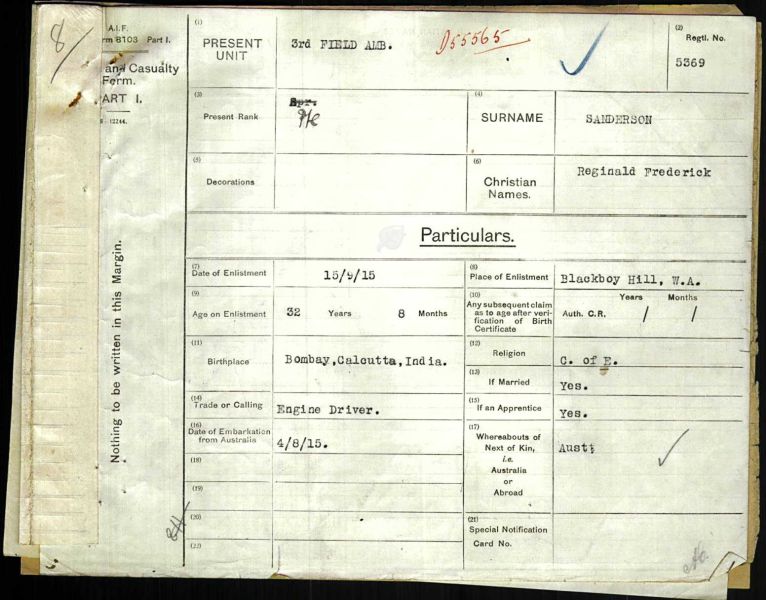 8/
A.I.F.
rm 8103 Part I.
and Casualty
Form.
ART I.
12244.
Nothing to be written in this Margin.
(1)
PRESENT
UNIT
3rd FIELD AMB.
D55565
(2)
Regtl. No.
5369
(3)
Present Rank
Spr.
Pte
(4)
SURNAME
SANDERSON
(5)
Decorations
(6)
Christian
Names.
Reginald Frederick
Particulars.
(7)
Date of Enlistment
15/9/15
(8)
Place of Enlistment
Blackboy Hill, W.A.
(9)
Age on Enlistment
32 Years 8 Months
(10)
Any subsequent claim
as to age after veri-
fication of Birth
Certificate
Years Months
Auth. C.R. / /
(11)
Birthplace
Bombay,Calcutta,India.
(12)
Religion
C. of E.
(13)
If Married
Yes.
(14)
Trade or Calling
Engine Driver.
(15)
If an Apprentice
Yes.
(16)
Date of Embarkation
from Australia
4/8/15.
(17)
Whereabouts of
Next of Kin,
i.e.
Australia
or
Abroad
Aust:
(18)
(19)
(20)
(21)
Special Notification
Card No.
(22)